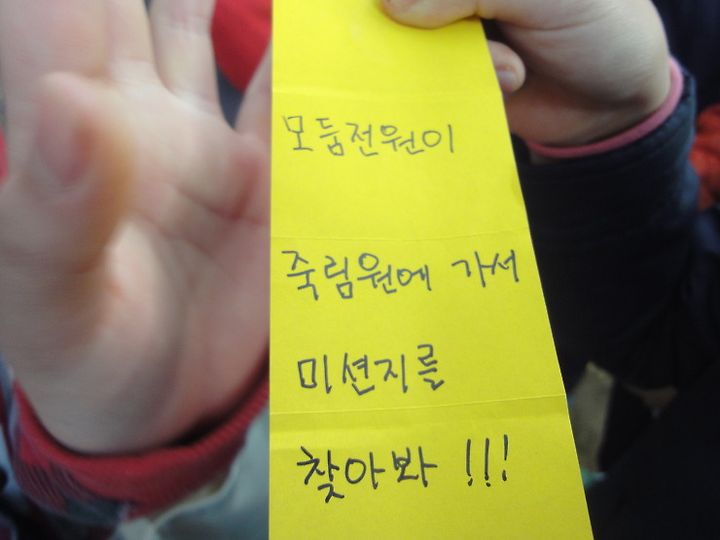 모둠전원이
죽림원에 가서
미션지를
찾아봐 !!!